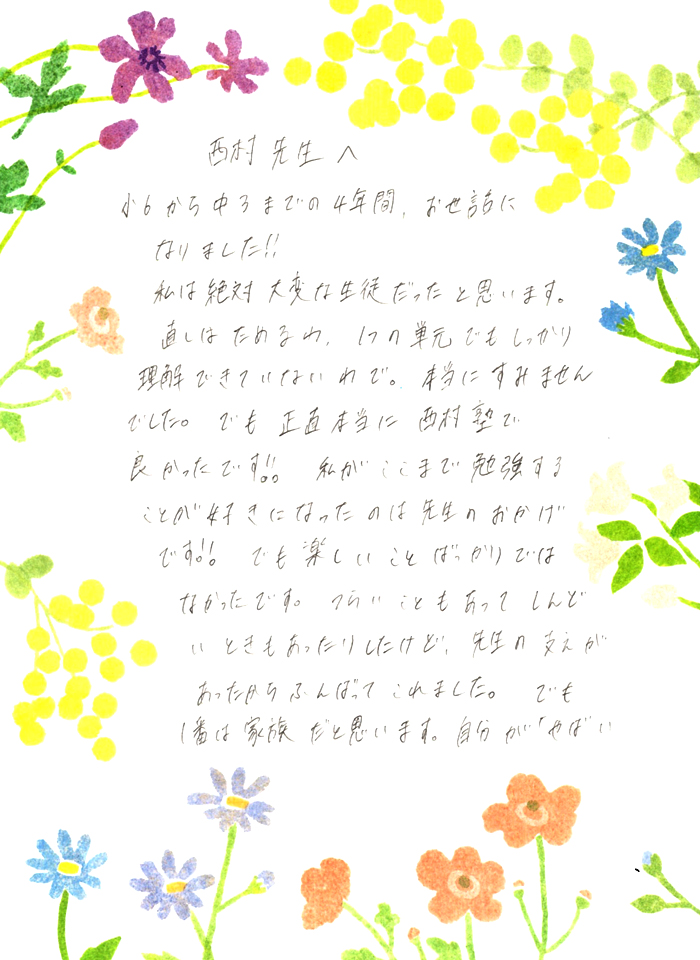 西村先生へ
小6から中3までの4年間、お世話に
なりました!!
私は絶対大変な生徒だったと思います。
直しはためるわ、1つの単元でもしっかり
理解できていないわで。本当にすみません
でした。でも正直本当に西村塾で
良かったです!!。私がここまで勉強する
ことが好きになったのは先生のおかげ
です!!。でも楽しいことばっかりでは
なかったです。つらいこともあってしんど
いときもあったりしたけど、先生の支えが
あったからふんばってこれました。でも
1番は家族だと思います。自分が「やばい